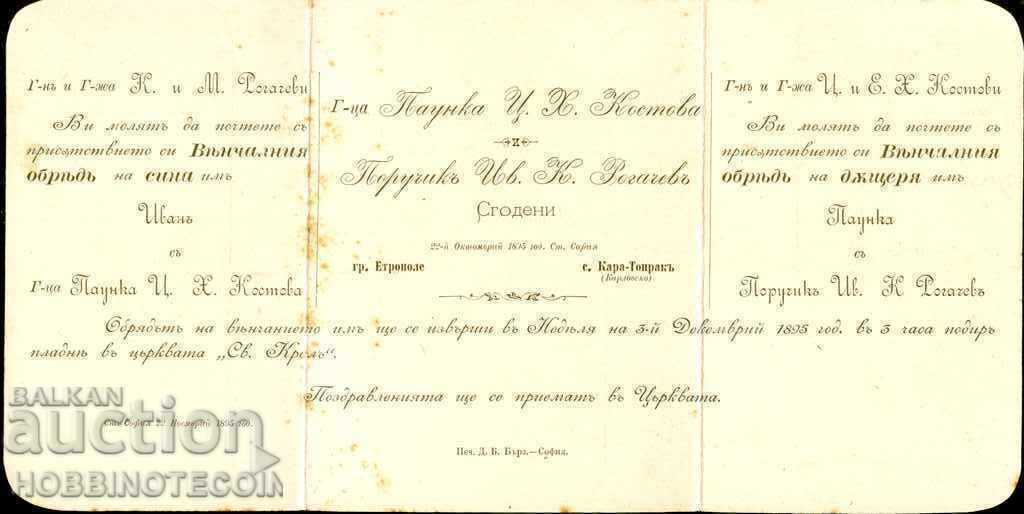 Г-нъ и Г-жа К. и М. Рогачеви
Ви молятъ да почтете съ
присѫтствието си Вѣнчалния
обрѣдъ на сина имъ
Иванъ
съ
Г-ца Паунка Ц. Х. Костова
Г-ца Паунка Ц. Х. Костова
и
Поручикъ Ив. К. Рогачевъ
Сгодени
22-й Октомврий 1895 год. Ст. София
гр. Етрополе
с. Кара-Топракъ
(Карловско)
Г-нъ и Г-жа Ц. и Е. Х. Костови
Ви молятъ да почтете съ
присѫтствието си Вѣнчялния
обрѣдъ на джщеря имъ
Паунка
съ
Поручикъ Ив. К Рогачевъ
Обрядътъ на вѣнчанието имъ ще се извърши въ Недѣля на 3-й Декемврий 1895 год. въ 3 часа подиръ
пладнѣ въ църквата „Св. Кралъ“.
Поздравленията ще се приематъ въ Църквата.
София 22 Ноемврий 1895 год.
Печ. Д. Б. Бърз.—София.
BALKAN
auction
HOBBINOTECOIN